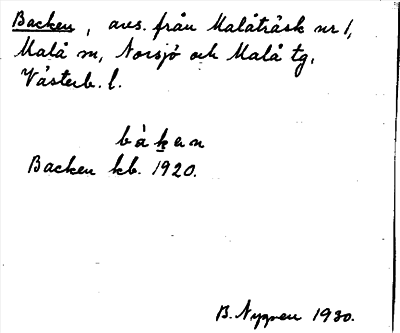 Backen, avs. från Malåträsk nr 1,
Malå sn, Norsjö och Malå tg,
Västerb. l.
bàken
Backen kb. 1920.
B. Nygren 1930.